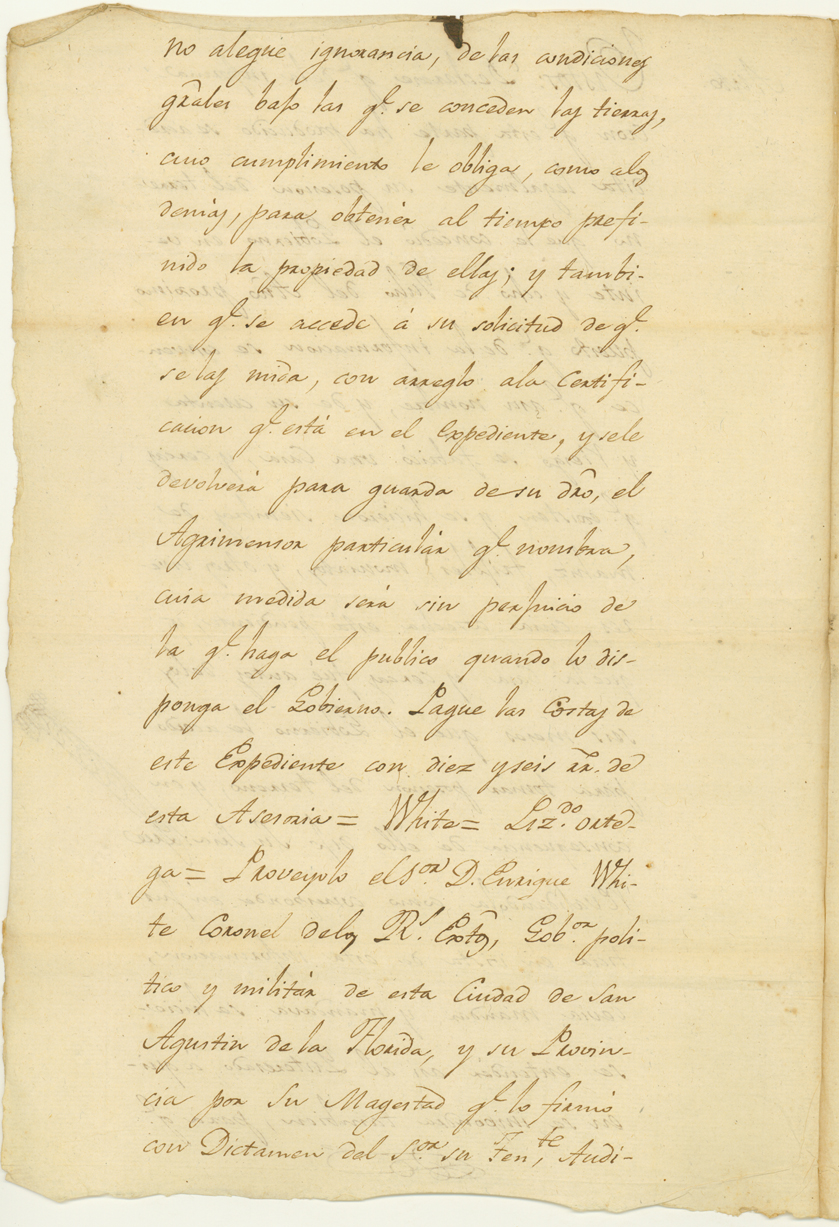 no alegue ignorancia, de las condiciones
grãles bajo las q.e se conceden las tierras,
cuio cumplimiento le obliga, como alos
demas, para obtenér al tiempo prefi-
nido la propiedad de ellas; y tambi-
en q.e se accede á su solicitud de q.e
se las mida, con arreglo ala Certifi-
cacion q.e está en el Expediente, y sele
devolverá para guarda de su dr̃o, el
Agrimensor particulár q.e nombra,
cuia medida será sin perjuicio de
la q.e haga el publico quando lo dis-
ponga el Gobierno. Pague las Costas de
este Expediente con diez y seis rr.s de
esta Asesoria = White = Liz.do Orte-
ga = Proveyolo el S.or D. Enrique Whi-
te Coronel delos R.s Extõs, Gob.or poli-
tico y militár de esta Ciudad de San
Agustin de la Florida, y su Provin-
cia por Su Magestad q.e lo firmó
con Dictamen del S.or su Ten.te, Audi-